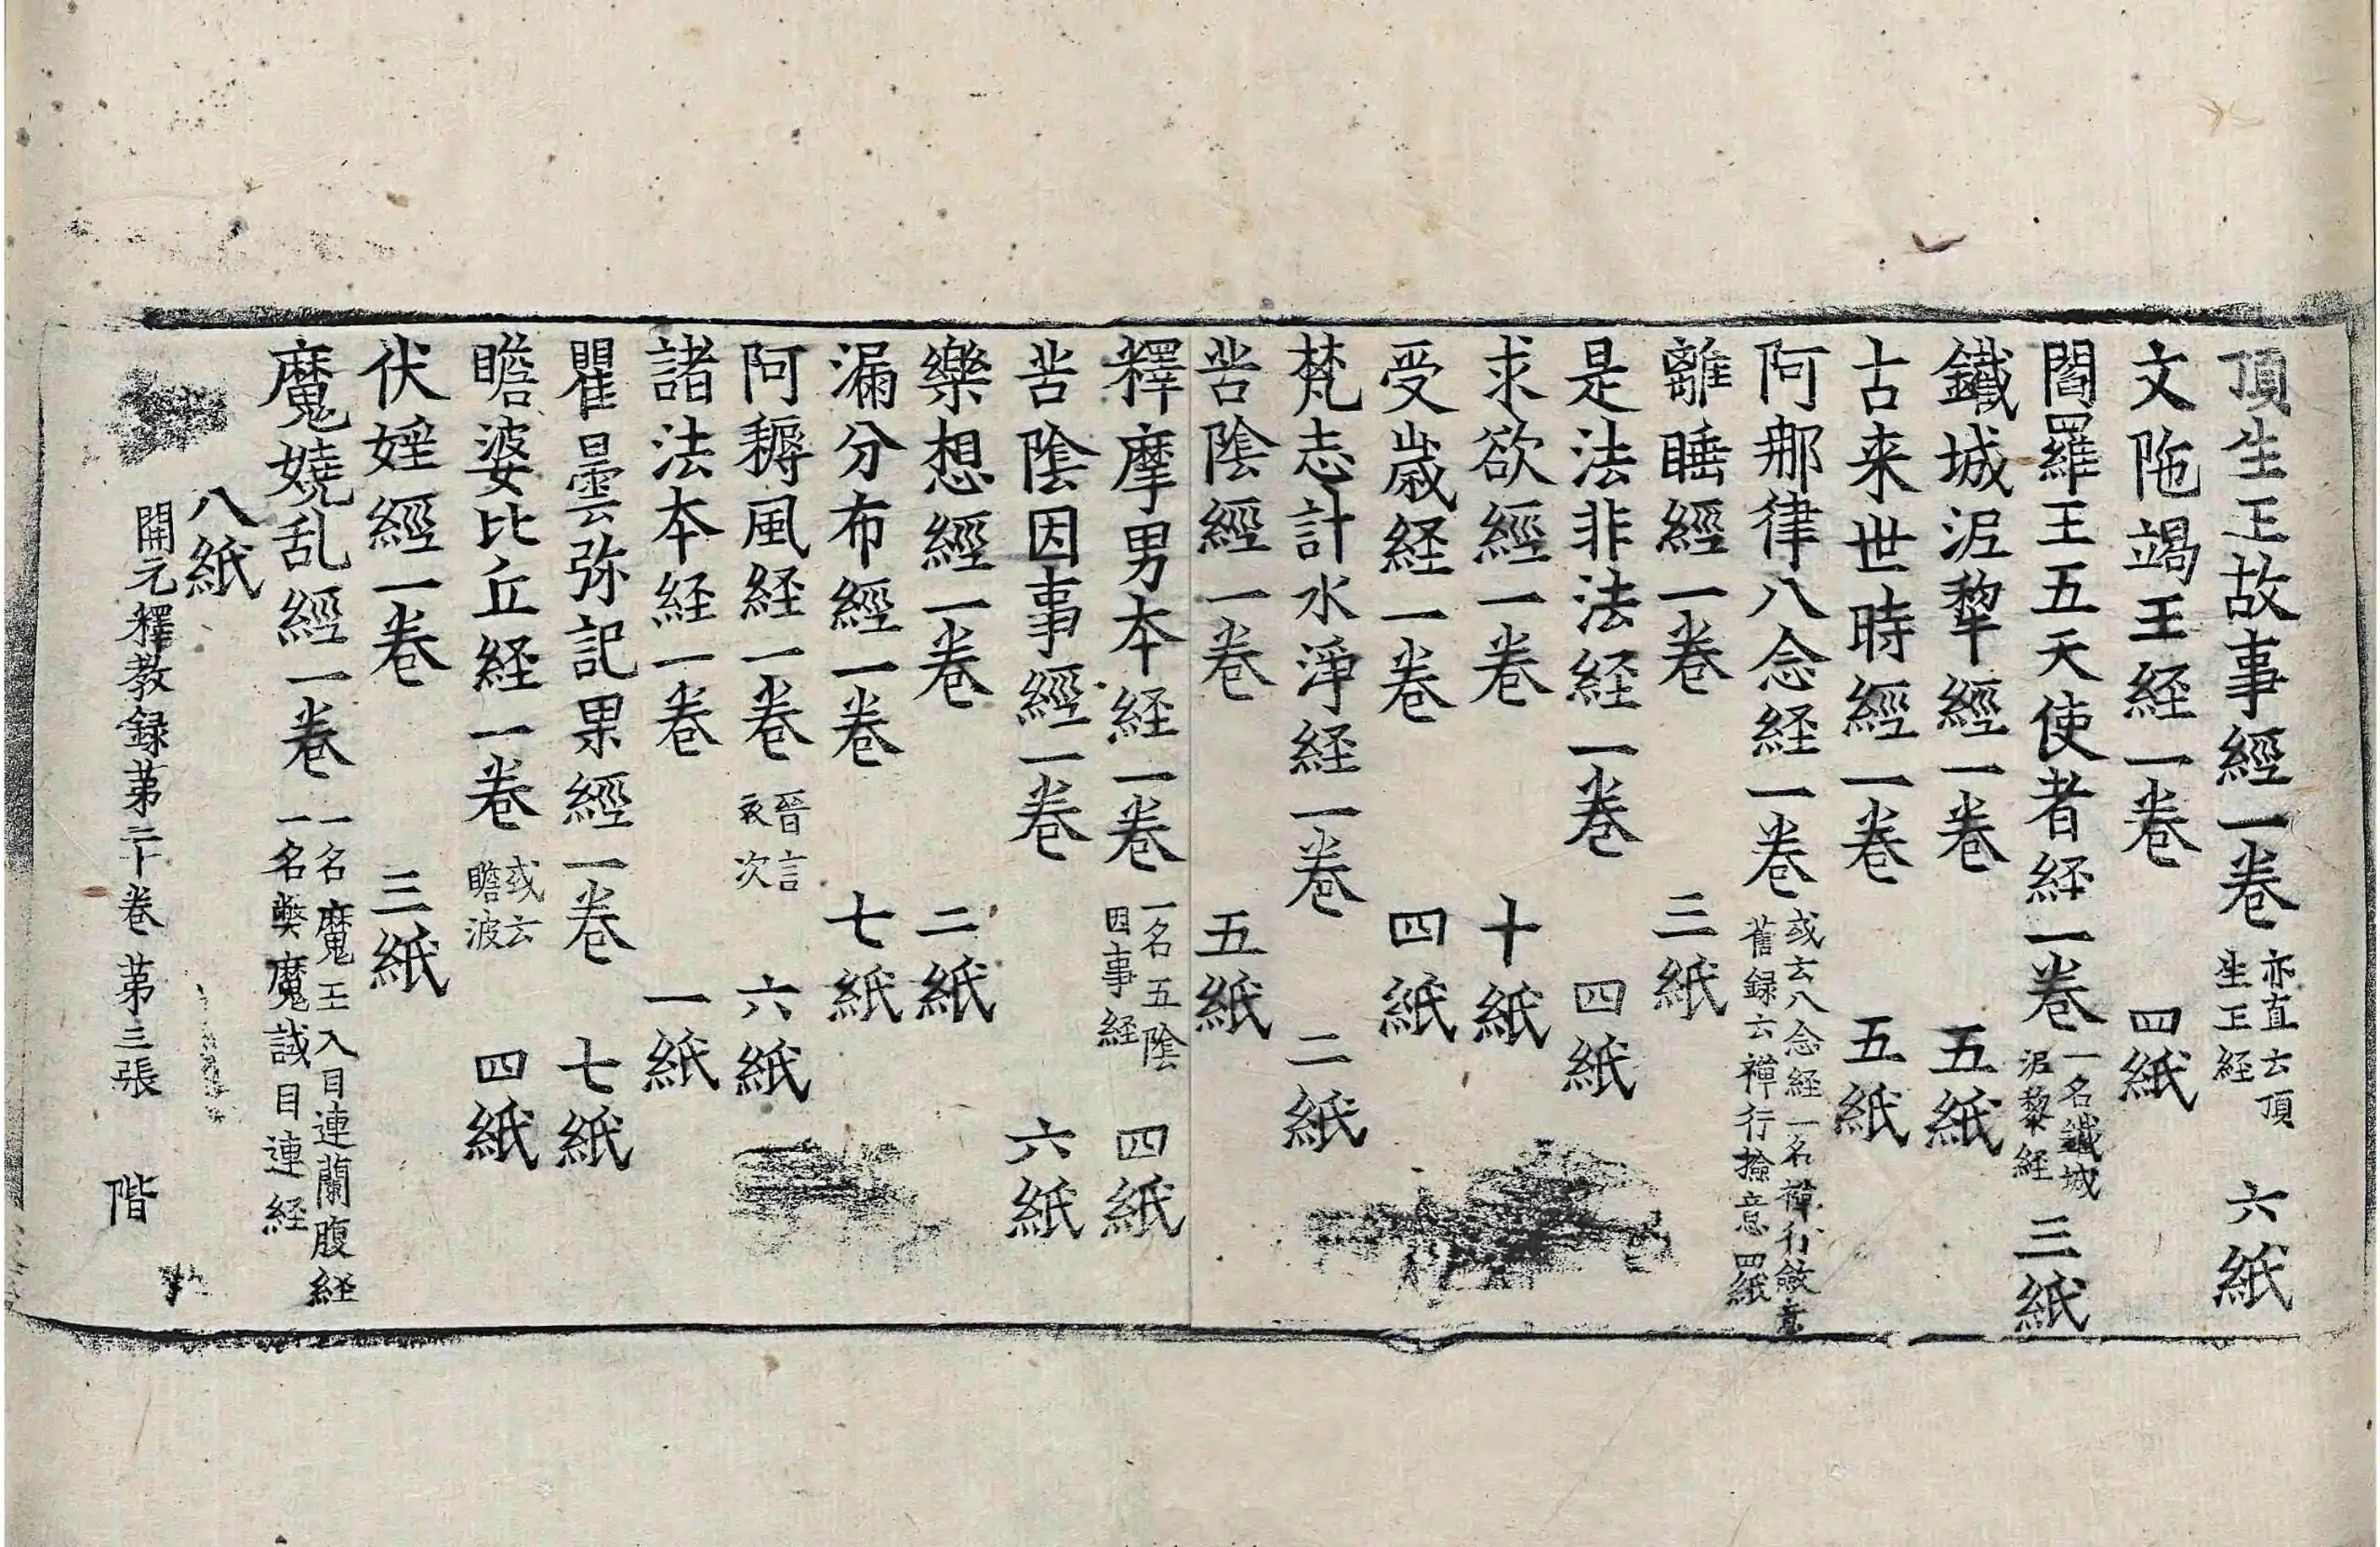 頂生王故事經一卷 亦直云頂生王経 六紙
文陁竭王経一卷 四紙
閻羅王五天使者経一卷 一名鐵城泥黎経 三紙
鐵城泥犂經一卷 五紙
古来世時經一卷 五紙
阿那律八念経一卷 或云八念経一名禅行斂意舊録云禪行撿意 四紙
離睡經一卷 三紙
是法非法経一卷 四紙
求欲經一卷 十紙
受歳経一卷 四紙
梵志計水淨経一卷 二紙
苦陰經一卷 五紙
釋摩男本経一卷 一名五陰因事経 四紙
苦陰因事經一卷 六紙
樂想經一卷 二紙
漏分布經一卷 七紙
阿耨風経一卷 晉言依次 六紙
諸法本経一卷 一紙
瞿曇弥記果經一卷 七紙
瞻婆比丘経一卷 或云瞻波 四紙
伏婬經一卷 三紙
魔嬈乱經一卷 一名魔王入目連蘭腹経一名弊魔試目連経
八紙
開元釋教録苐二十卷 苐三張 階